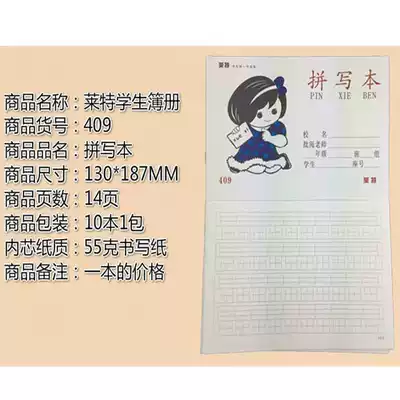 商品名称：莱特学生簿册
商品货号：409
商品品名：拼写本
商品尺寸：130*187MM
商品页数：14页
商品包装：10本1包
内芯纸质：55克书写纸
商品备注：一本的价格
拼写本
PIN XIE BEN
校名
批阅老师
年级 班组
学生 座号
409